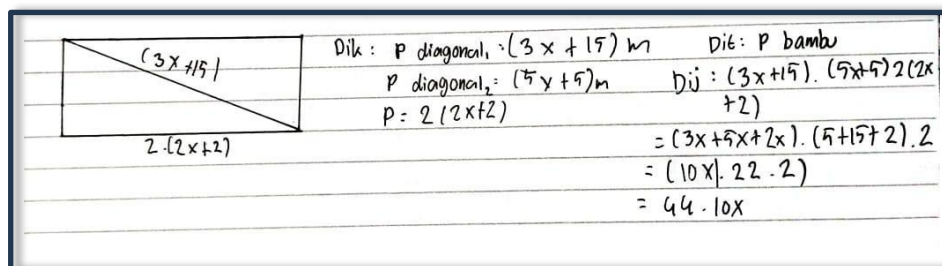 (3x +15)
2.(2x+2)
Dik : P diagonal₁ : (3x + 15) m
P diagonal₂ = (5x+5)m
P = 2 (2x+2)
Dit : P bambu
Dij : (3x+15). (5x+5) 2(2x
+2)
= (3x+5x+2x). (5+15+2).2
= (10x). 22 . 2)
= 44 . 10x